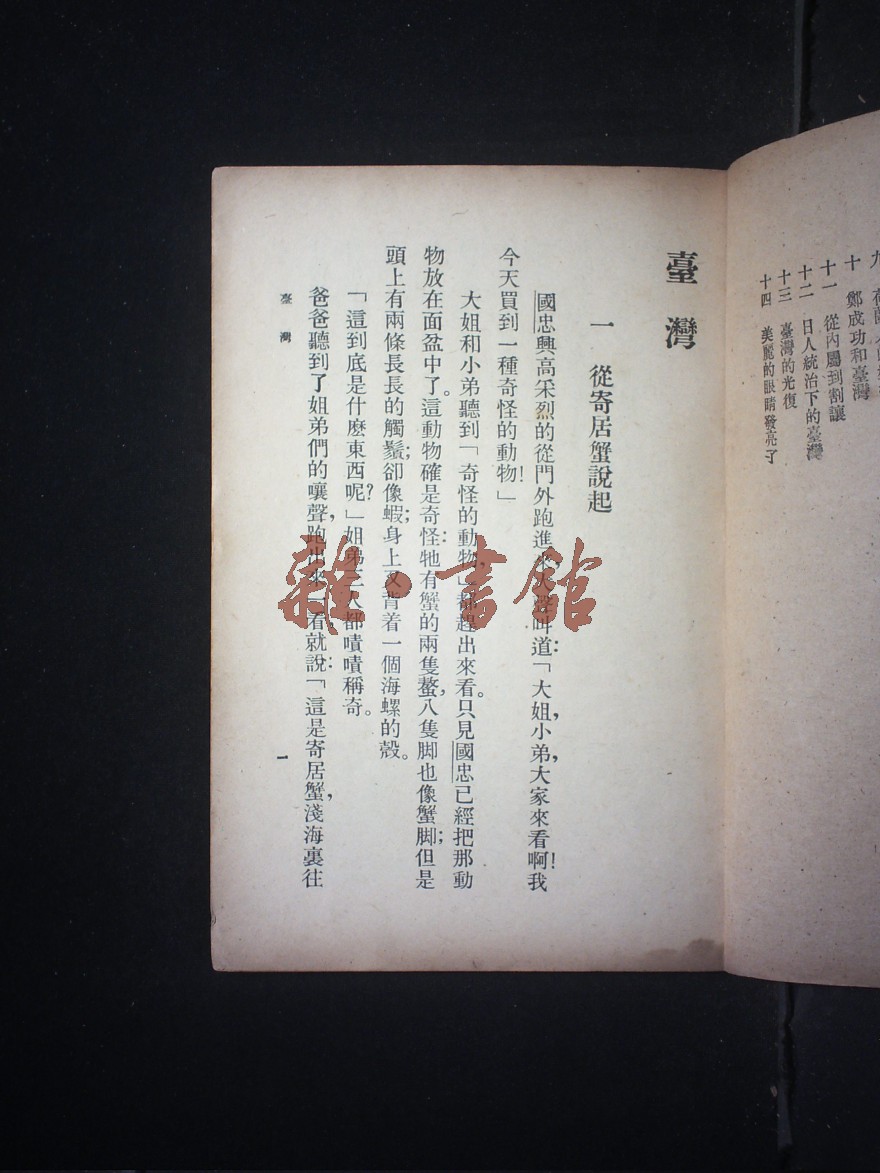 九
十　鄭成功和臺灣
十一　從內屬到割讓
十二　日人統治下的臺灣
十三　臺灣的光復
十四　美麗的眼睛發亮了
臺灣
一　從寄居蟹說起
國忠興高采烈的從門外跑進來，大聲叫道：「大姐，小弟，大家來看啊！我
今天買到一種奇怪的動物！」
大姐和小弟聽到「奇怪的動物，」都趕出來看。只見國忠已經把那動
物放在面盆中了。這動物確是奇怪：牠有蟹的兩隻螯，八隻脚也像蟹脚；但是
頭上有兩條長長的觸鬚；卻像蝦；身上又背着一個海螺的殼。
「這到底是什麽東西呢？」姐弟三人都嘖嘖稱奇。
爸爸聽到了姐弟們的嚷聲，跑出來一看，就說：「這是寄居蟹，淺海裏往
臺灣
一
雜·書館